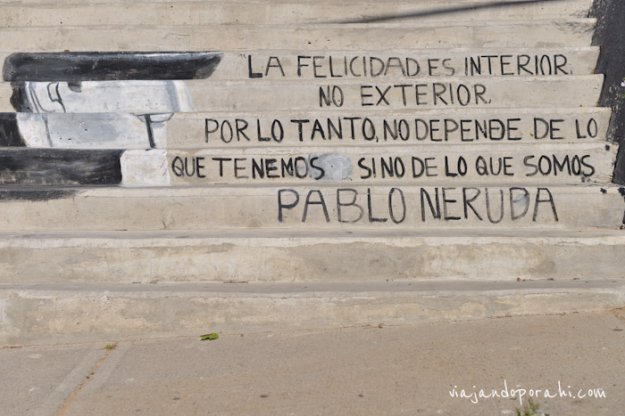 "LA FELICIDAD ES INTERIOR,
NO EXTERIOR,
POR LO TANTO, NO DEPENDE DE LO
QUE TENEMOS SINO DE LO QUE SOMOS
PABLO NERUDA
viajandoporahi.com